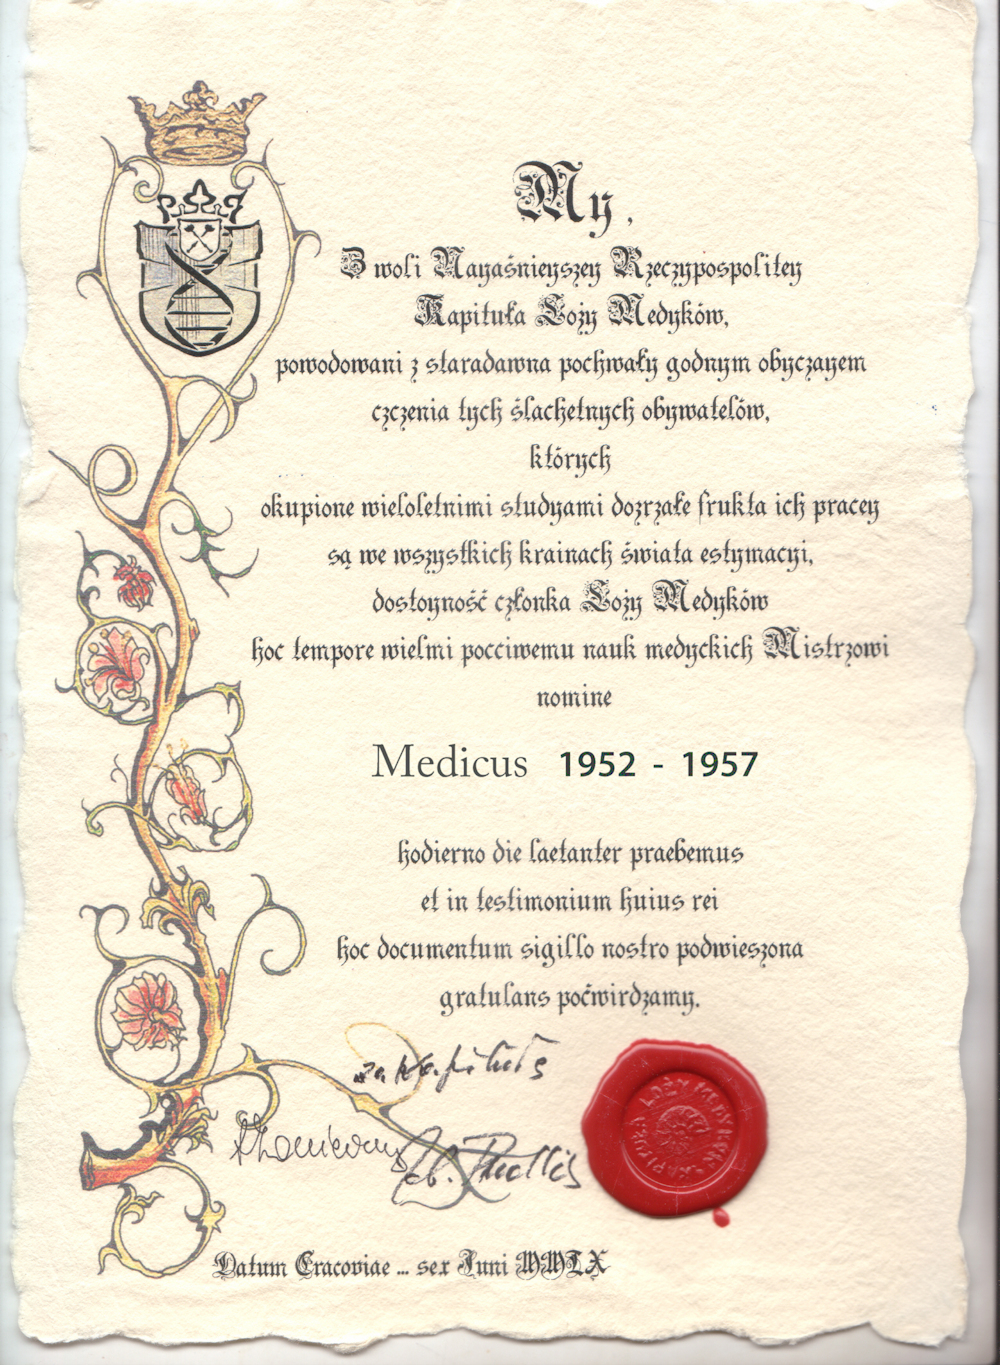 My,
Z woli Nayaśnieyszey Rzeczypospolitey
Kapituła Loży Medyków,
powodowani z staradawna pochwały godnym obyczayem
czczenia tych ślachetnych obywatelów,
których
okupione wieloletnimi studyami dozrzałe frukta ich pracey
są we wszystkich krainach świata estymacyi,
dostoyność członka Loży Medyków
hoc tempore wielmi pocciwemu nauk medyckich Mistrzowi
nomine
Medicus 1952 - 1957
hodierno die laetanter praebemus
et in testimonium huius rei
hoc documentum sigillo nostro podwieszona
gratulans poćwirdzamy.
za Kapitułę
KAPITUŁA LOŻY MEDYKÓW
Datum Cracoviae ... sex Juni MMLX